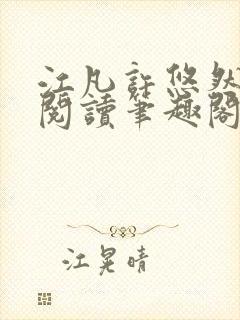 江凡許悠然
閱讀筆趣閣
江晃晴